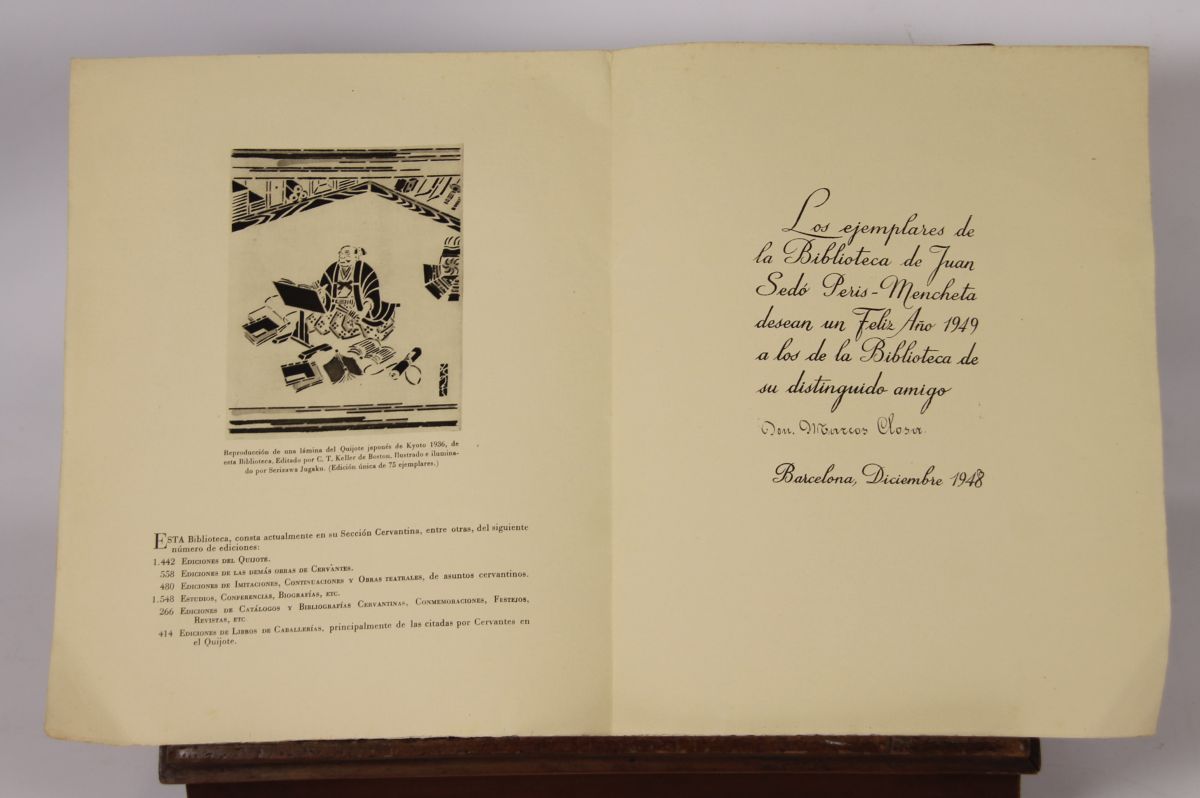 Reproducción de una lámina del Quijote japonés de Kyoto 1936, de
esta Biblioteca. Editado por C. T. Keller de Boston. Ilustrado e ilumina-
do por Serizawa Jugaku. (Edición única de 75 ejemplares.)
ESTA Biblioteca, consta actualmente en su Sección Cervantina, entre otras, del siguiente
número de ediciones:
1.442 EDICIONES DEL QUIJOTE.
558 EDICIONES DE LAS DEMÁS OBRAS DE CERVANTES.
480 EDICIONES DE IMITACIONES, CONTINUACIONES Y OBRAS TEATRALES, de asuntos cervantinos.
1.548 ESTUDIOS, CONFERENCIAS, BIOGRAFÍAS, ETC.
266 EDICIONES DE CATÁLOGOS Y BIBLIOGRAFÍAS CERVANTINAS, CONMEMORACIONES, FESTEJOS,
REVISTAS, ETC
414 EDICIONES DE LIBROS DE CABALLERÍAS, principalmente de las citadas por Cervantes en
el Quijote.
Los ejemplares de
la Biblioteca de Juan
Sedó Peris-Mencheta
desean un Feliz Año 1949
a los de la Biblioteca de
su distinguido amigo
Don. Marcos Closa
Barcelona, Diciembre 1948